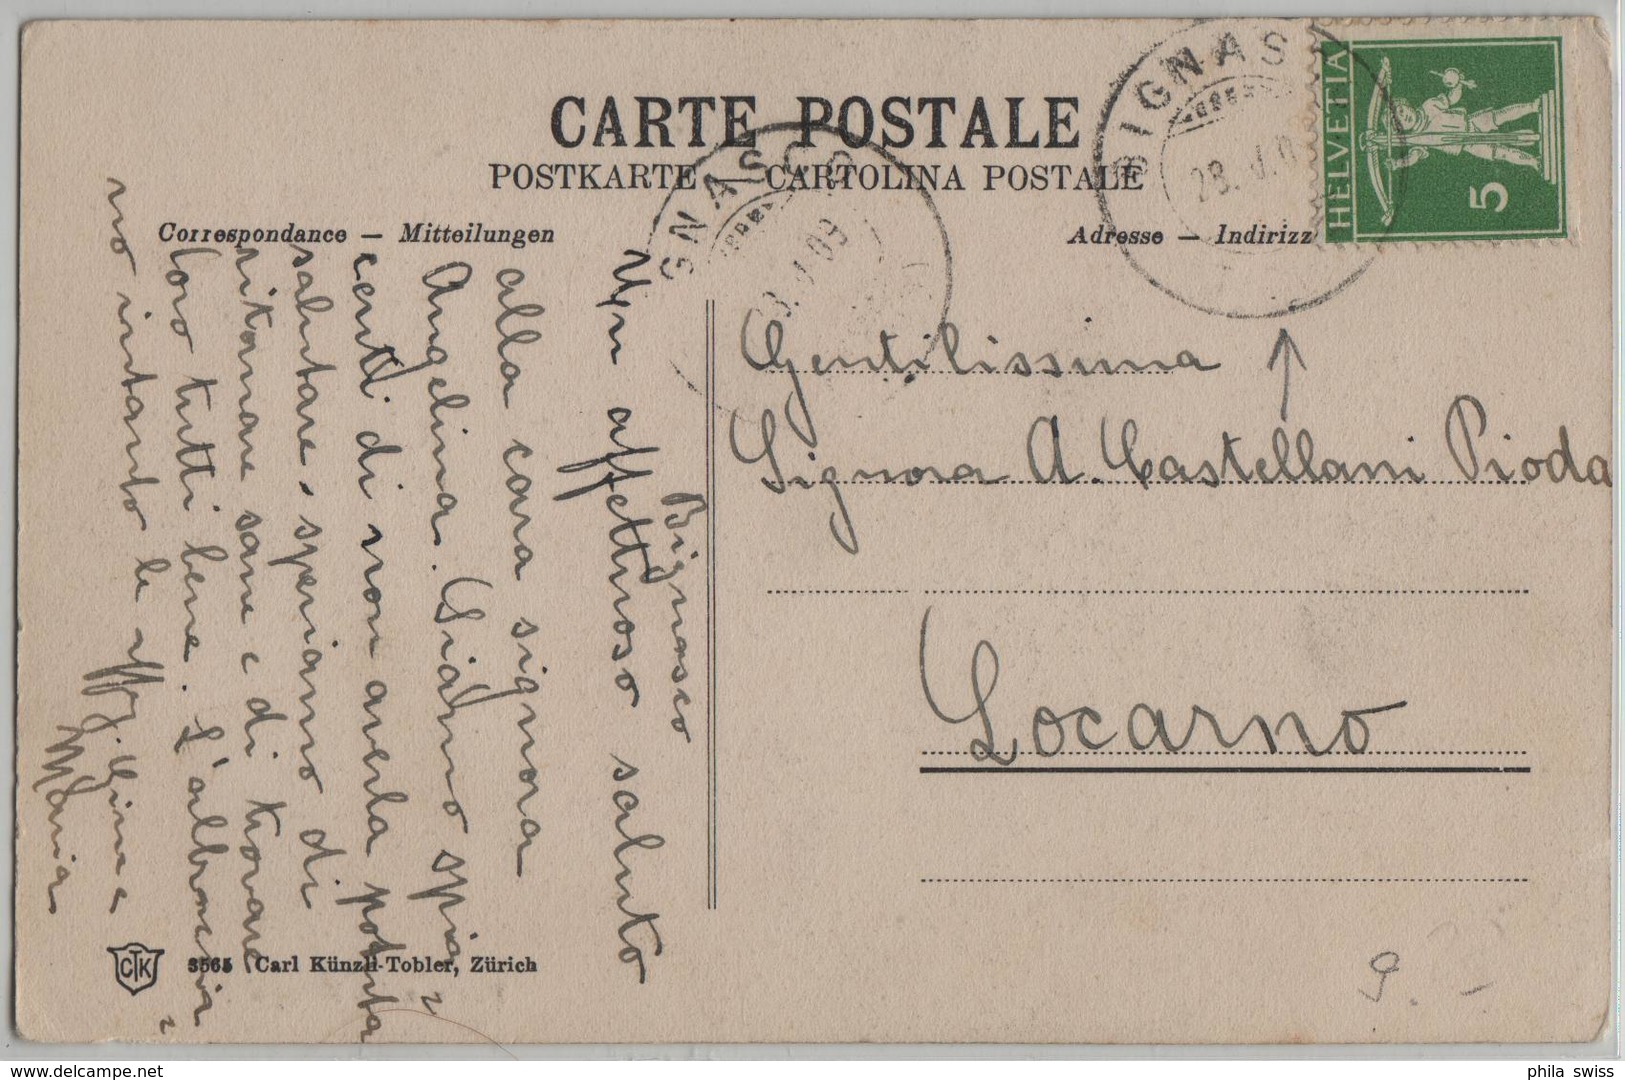 CARTE POSTALE
POSTKARTE — CARTOLINA POSTALE
Correspondance — Mitteilungen
Adresse — Indirizz
BIGNAS
28.
HELVETIA
5
GNASCO
09
Bignasco
Un affettuoso saluto
alla cara signora
Angelina. Siamo spia
centi di non averla potuta
salutare, speriamo di
ritornare sane e di trovare
loro tutti bene. L'abbraccia
no intanto le aff. Gina e
Maria
Gentilissima
Signora A. Castellani Pioda
Locarno
CTK
3565 Carl Künzli-Tobler, Zürich
9.-
phila swiss
www.delcampe.net